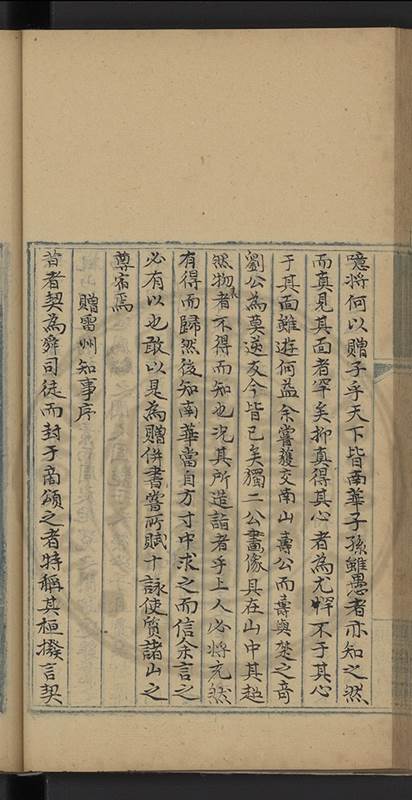 噫將何以贈子乎天下皆南華子孫雖愚者亦知之然
而真見其面者罕矣抑真得其心者為尤罕不于其心
于其面雖遊何益余嘗獲交南山壽公而壽與楚之奇
劉公為莫逆友今皆已矣獨二公畫像具在山中其超
然物表者不得而知也況其所造詣者乎上人必將充然
有得而歸然後知南華當自方寸中求之而信余言之
必有以也敢以是為贈併書嘗所賦十詠使質諸山之
尊宿焉
贈雷州知事序
昔者契為舜司徒而封于商頌之者特稱其桓撥言契